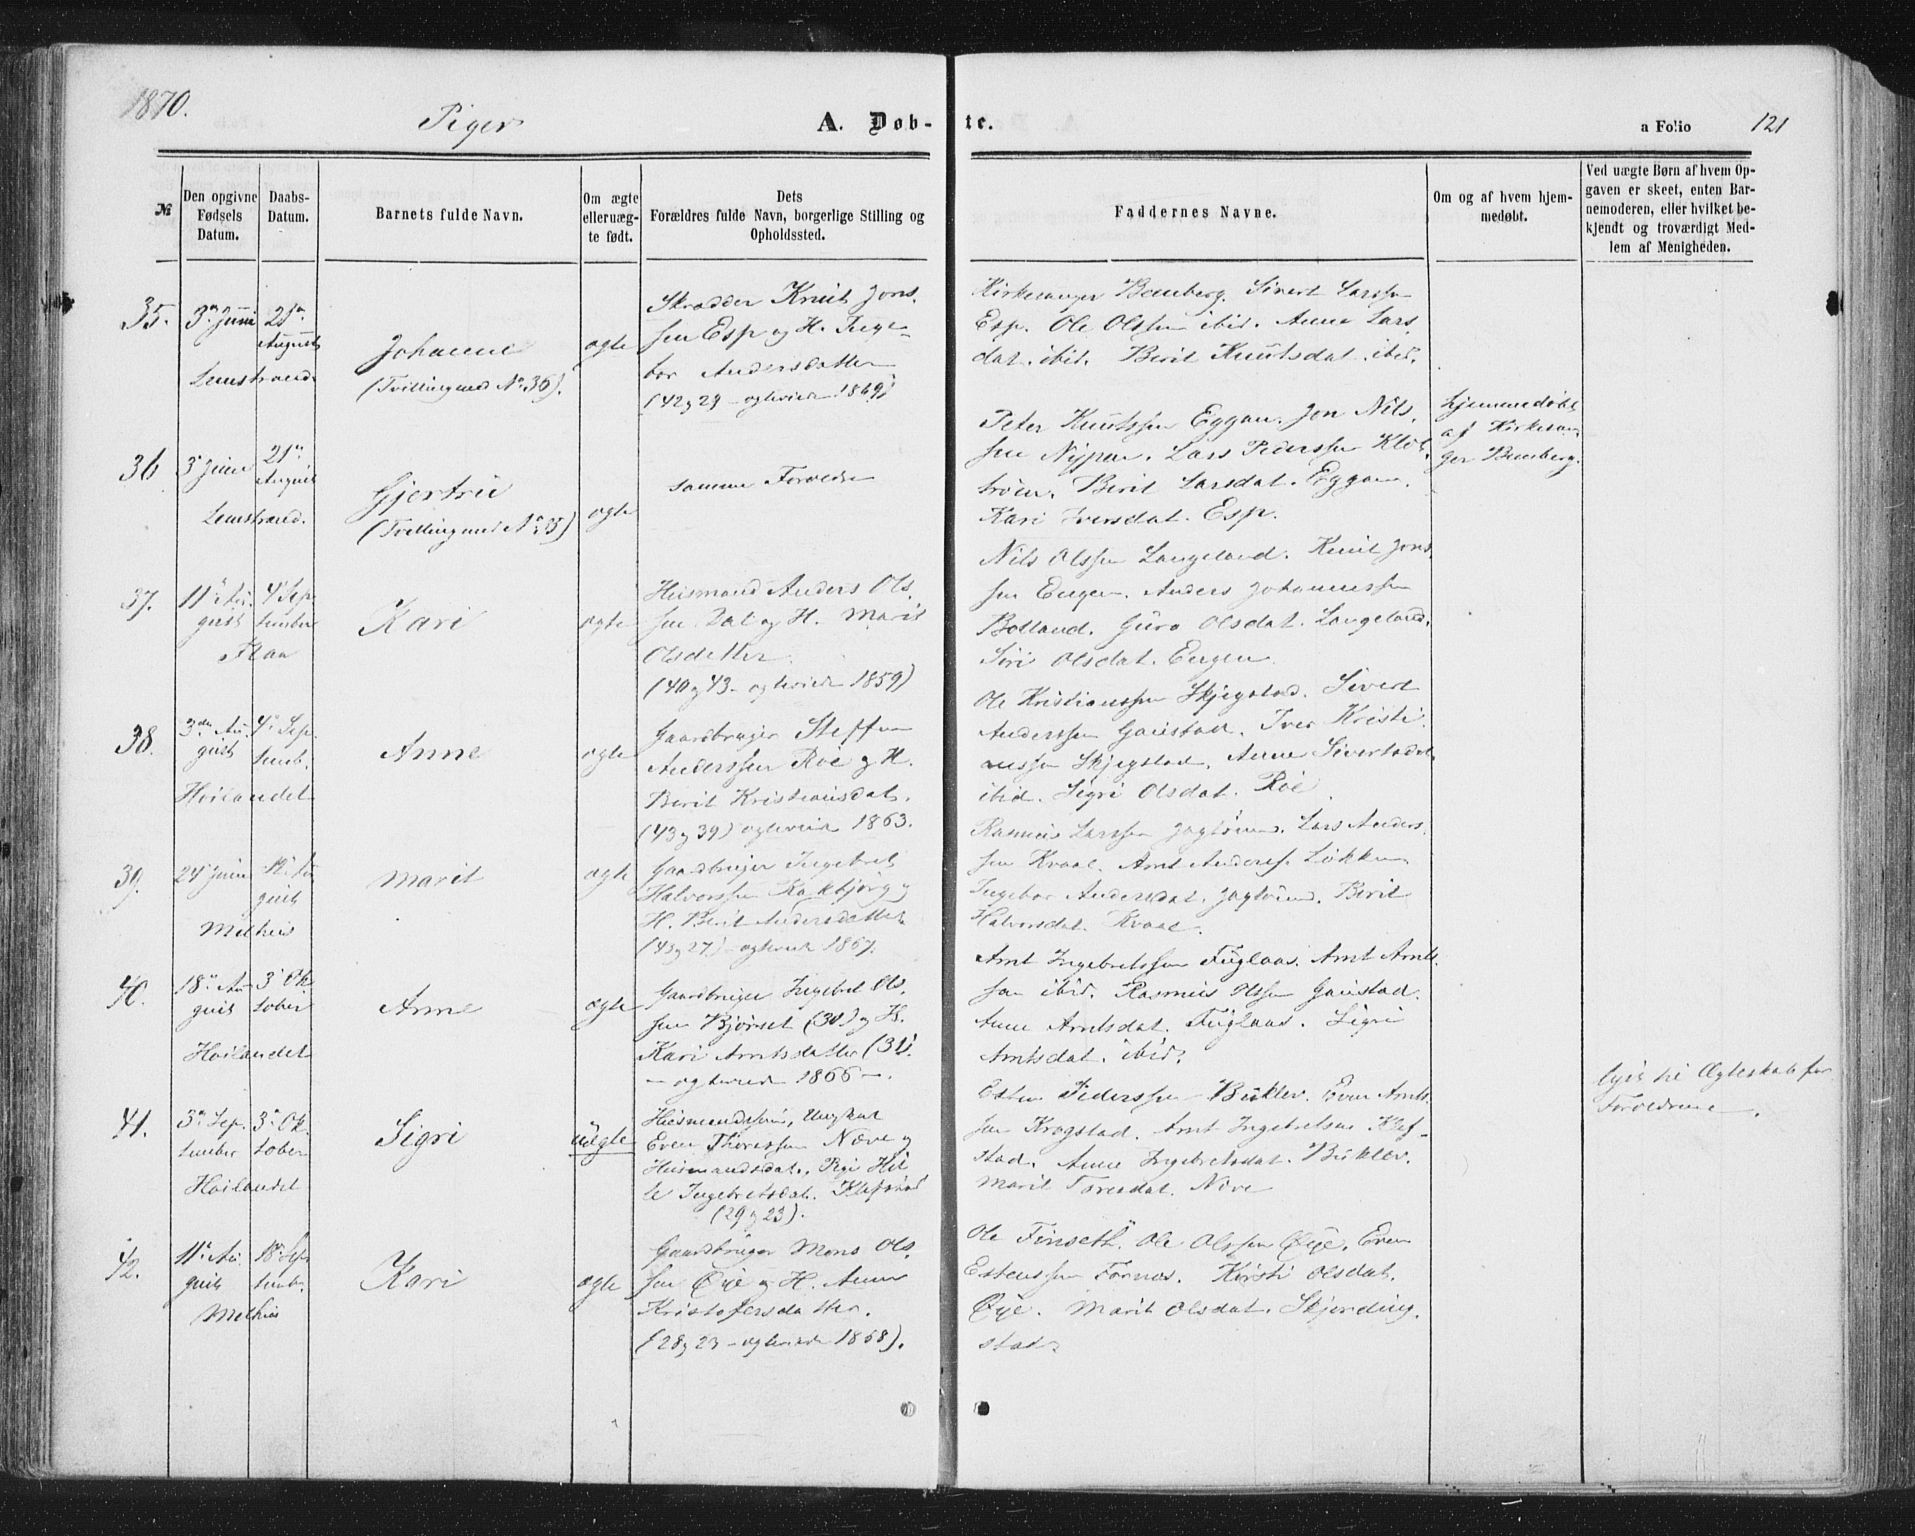 1870. Piger A. Døb- te. a Folio 121
№
Den opgivne Fødsels Datum.
Daabs-Datum.
Barnets fulde Navn.
Om ægte elleruæg-te født.
Dets Forældres fulde Navn, borgerlige Stilling og Opholdssted.
Faddernes Navne.
Om og af hvem hjem-medøbt.
Ved uægte Børn af hvem Op-gaven er skeet, enten Bar-nemoderen, eller hvilket be-kjendt og troværdigt Med-lem af Menigheden.
35. 3. Juni
21. August
Lenstrand
Johanne
(Tvilling med No. 36).
ægte
Skrædder Knut Jons.
sen Esp og H. Inge-
bor Andersdatter
(42 og 29 - egteviede 1869)
Kirkesanger Sivert Larssen
Esp. Ole Olssen ibid. Anne Lars
dat. ibid. Berit Knutsdat. ibid.
36 3 Juni
21. August
Lenstrand.
Gjertrü
(Tvilling med No. 35)
ægte
samme Foreldre
Peter Knutssen Eggan. Jon Nils.
sen Nypen. Lars Pederssen
Berit Larsdat. Eggan.
Kari Iversdat. Esp.
hjemmedøbt
af Kirkesan
ger
37. 11. Au
gust
4. Sep
tember
Flaa
Kari
ægte
Husmand Anders Ols.
sen Dal og H. Marit
Olsdatter.
(40 og 43 - egteviede 1859)
Nils Olssen Langeland. Knut Jons.
sen Engen. Anders Johannessen
Bolland. Guro Olsdat. Langeland.
Siri Olsdat. Engen.
38. 3. Au
gust
4. Sep
temb.
Høilandet
Anne
ægte
Gaardbruger Steffen
Anderssen Røe og H.
Berit Kristiansdat.
(43 og 39) egteviede 1863.
Ole Kristianssen Skjegstad. Sivert
Anderssen Gaustad. Iver Kristi
anssen Skjegstad. Anne Sivertsdat.
ibid. Sigri Olsdat. Røe
39. 24 Juni
gust
Melhus
Marit
ægte
Gaardbruger Ingebret
Halvorssen og
H. Berit Andersdatter
(43 og 27) - egteviede 1867.
Rasmus Larssen Lars Anders.
sen Kvaal. Arnt Anderss. Løkken
Ingebor Andersdat. Berit
Halvorsdat. Kvaal.
40. 18. Au
gust
3. Ok
tober
Høilandet
Anne
ægte
Gaardbruger Ingebret Ols.
sen Bjørset og H.
Kari Arntsdatter (31)
- egteviede 1866 -.
Arnt Ingebretssen Fuglaas. Arnt Arnts.
sen ibid. Rasmus Olssen Gaustad.
Anne Arntsdat. Fuglaas. Sigri
Arntsdat. ibid.
41. 3. Sep.
tember
3. Ok.
tober
Høilandet
Sigri
uægte
Husmandssøn, Ungkar
Even Thoressen Næve og
Husmandsdat. Pige
Ingebretsdat. Klefstad
(29 og 23).
Esten Pederssen Buklev. Even Arnts.
sen Krogstad. Arnt Ingebretssen Klef-
stad. Anne Ingebretsdat. Buklev.
Marit Toresdat. Næve
lyst til Ægteskab for
Foreldrene.
42. 11. Au
gust
18. Sep
temb.
Melhus
Kari
ægte
Gaardbruger Mons Ols.
sen Øye og H. Anne
Kristofersdatter.
(28 og 23 - egteviede 1868).
Ole Finseth. Ole Olssen Øye. Even
Estenssen Fornes. Kirsti Olsdat.
Øye. Marit Olsdat. Skjerding
stad.